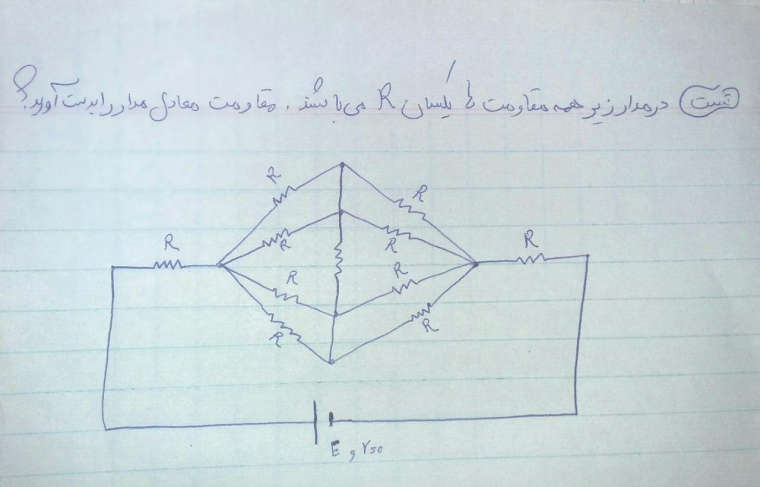 تست در مدار زیر همه مقاومت ها یکسان R می باشند . مقاومت معادل مدار را بدست آورید؟
R
R
R
R
R
R
R
R
R
R
E و r=0